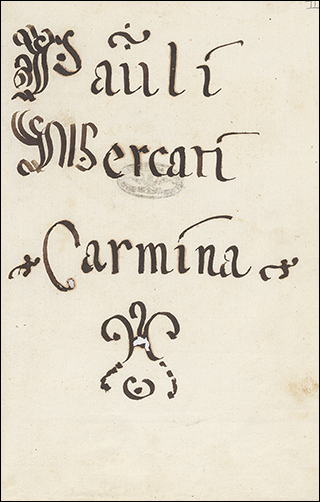 Pauli
Mercati
Carmina